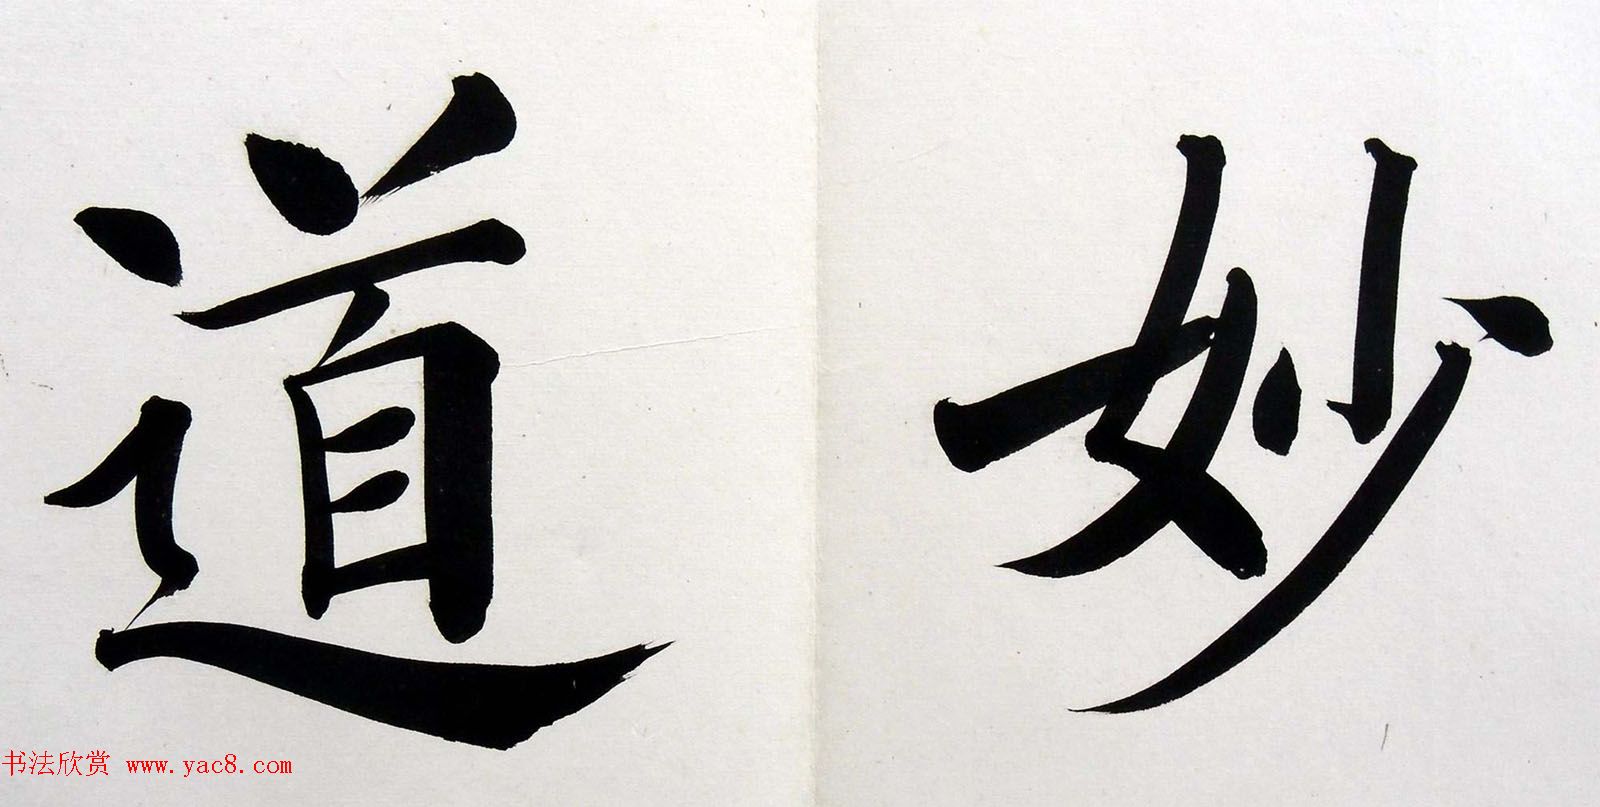 妙道
书法欣赏 www.yac8.com